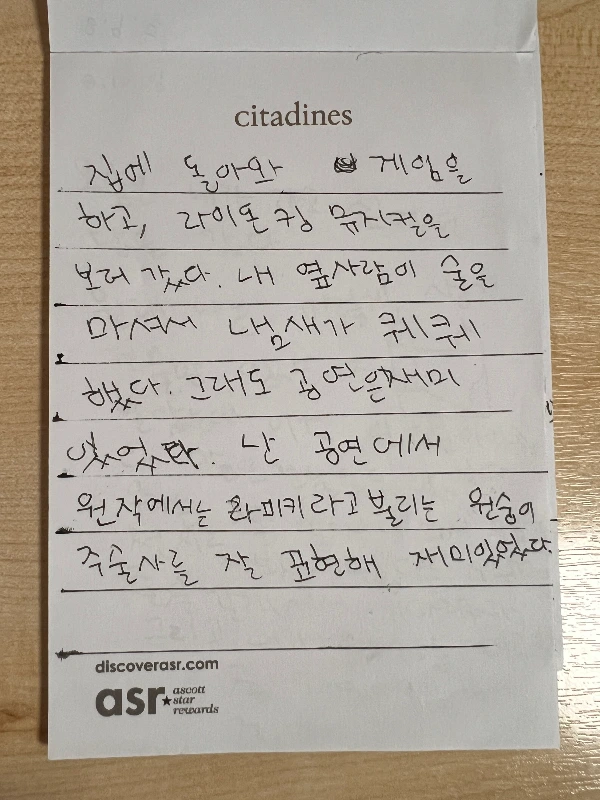 citadines
집에 돌아와 게임을
하고, 라이온 킹 뮤지컬을
보러 갔다. 내 옆사람이 술을
마셔서 냄새가 퀘퀘
했다. 그래도 공연은재미
있었다. 난 공연에서
원작에서는 라미키라고 불리는 원숭이
주술사를 잘 표현해 재미있었다.
discoverasr.com
asr ascott star rewards